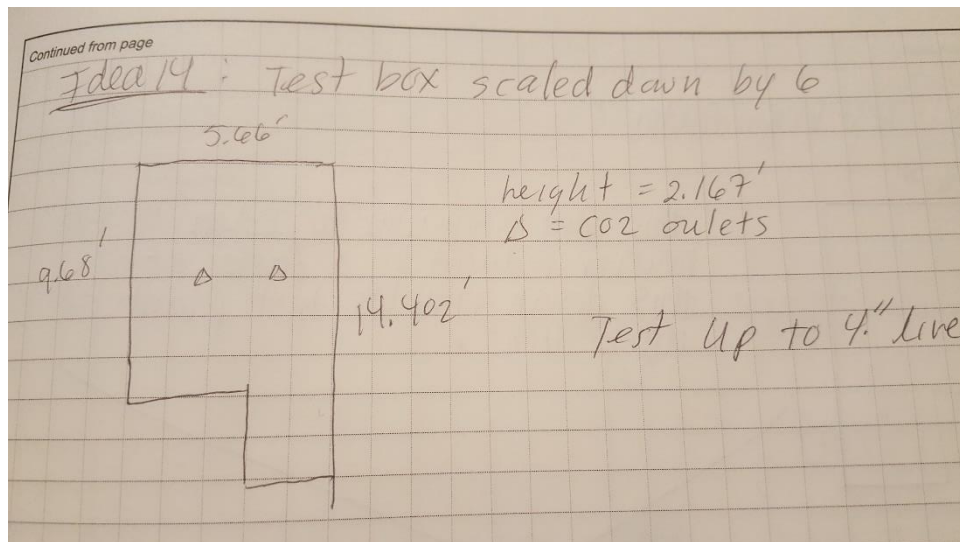 Continued from page
Idea 14 : Test box scaled down by 6
5.66'
height = 2.167'
Δ = CO2 oulets
9.68'
14.402'
Test up to 4." live